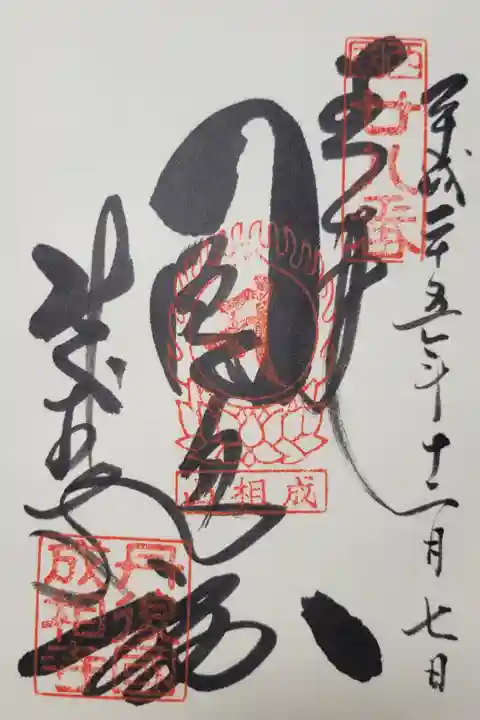 平成二十五年十二月七日
西国
廿八番
奉拝
成相山
成相寺
丹後国
成相寺